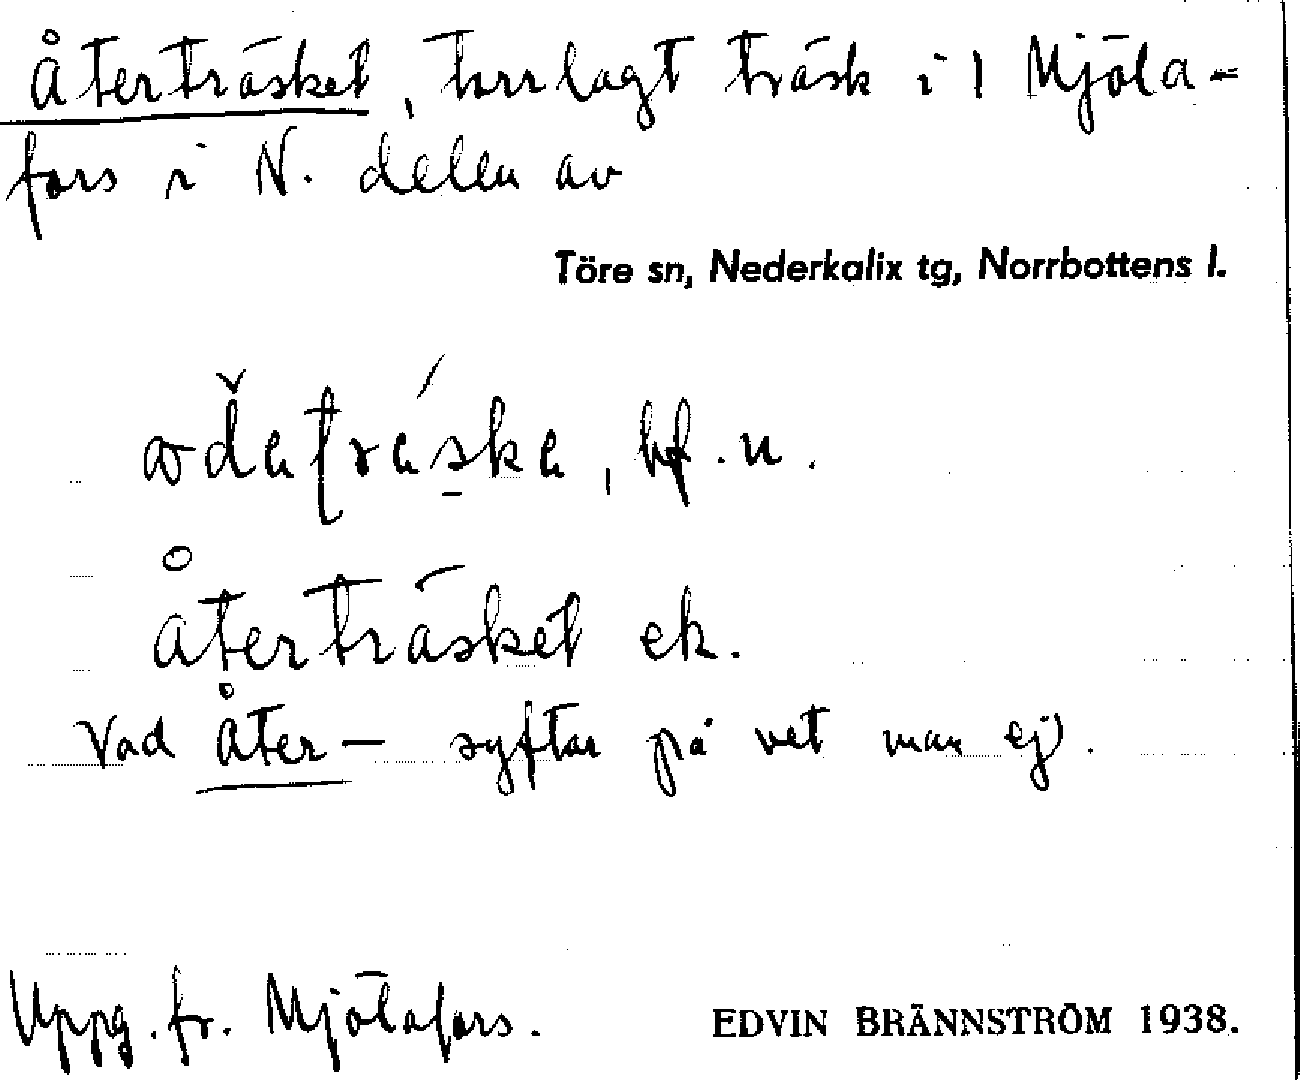 Återträsket, torrlagt träsk i 1 Mjöla-
fors i N. delen av
Töre sn, Nederkalix tg, Norrbottens l.
bf. n.
Återträsket ek.
Vad åter- syftar på vet man ej.
Uppg. fr. Mjölafors.
EDVIN BRÄNNSTRÖM 1938.